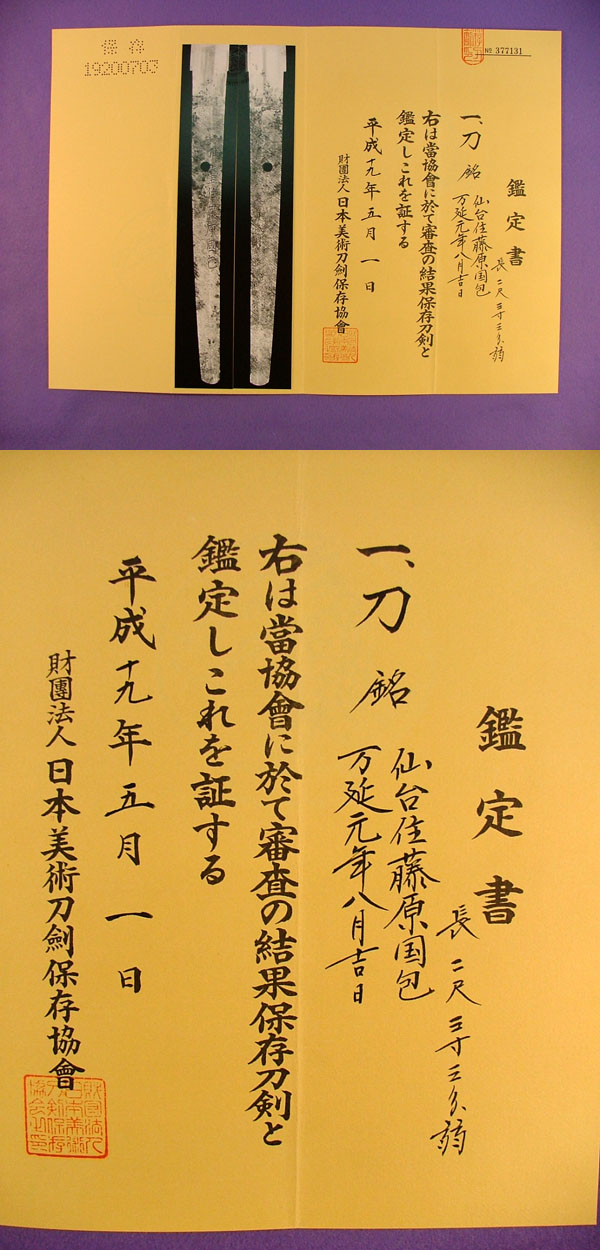 保存
19200703
№ 377131
鑑定書
一、刀 銘 仙台住藤原国包
万延元年八月吉日
長二尺三寸三分弱
右は當協會に於て審査の結果保存刀剣と
鑑定しこれを証する
平成十九年五月一日
財團法人日本美術刀劍保存協會
鑑定書
一、刀 銘 仙台住藤原国包
万延元年八月吉日
長二尺三寸三分弱
右は當協會に於て審査の結果保存刀剣と
鑑定しこれを証する
平成十九年五月一日
財團法人日本美術刀劍保存協會